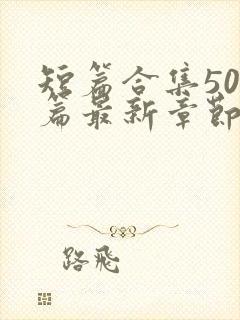 短篇合集50
篇最新章节
路飛